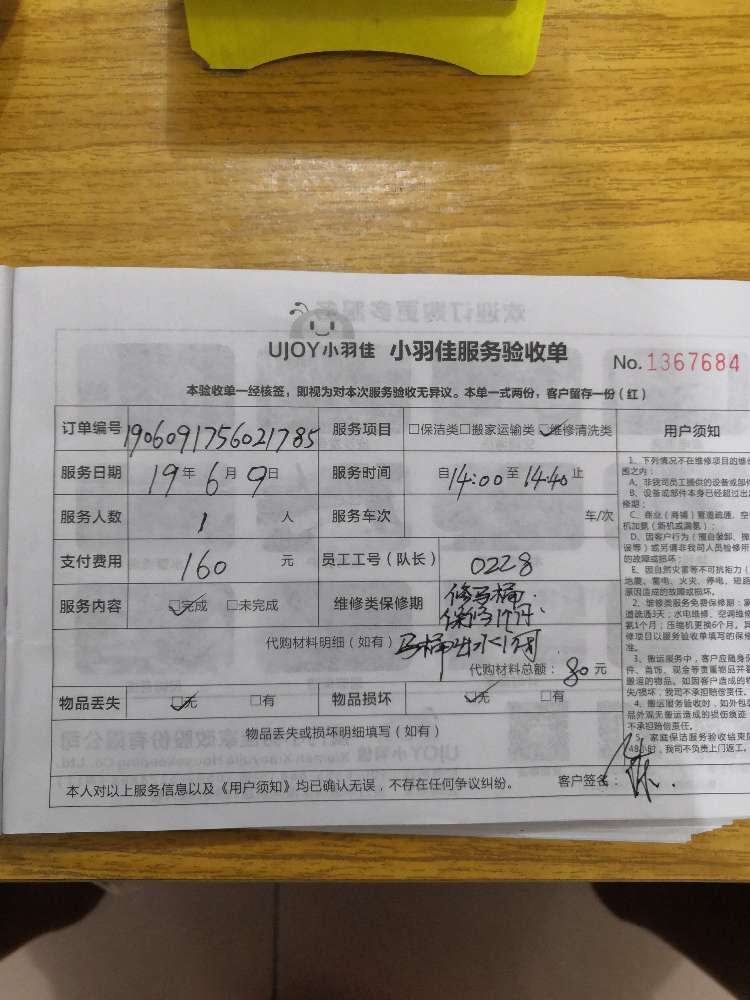 UJOY小羽佳 小羽佳服务验收单 No. 1367684
本验收单一经核签，即视为对本次服务验收无异议。本单一式两份，客户留存一份（红）
订单编号 1906091756021785 服务项目 □保洁类□搬家运输类☑维修清洗类 用户须知
服务日期 19年6月9日 服务时间 自14:00至14:40止
服务人数 1 人 服务车次 车/次
支付费用 160 元 员工工号（队长） 0228
服务内容 ☑完成 □未完成 维修类保修期 修马桶.
保修1个月.
代购材料明细（如有） 马桶出水
代购材料总额： 80 元
物品丢失 ☑无 □有 物品损坏 ☑无 □有
物品丢失或损坏明细填写（如有）
本人对以上服务信息以及《用户须知》均已确认无误，不存在任何争议纠纷。 客户签名：
1、下列情况不在维修项目的维
围之内：
A、非我司员工提供的设备或部件
B、设备或部件本身已经超过出
修期；
C、商业（商铺）管道疏通、空
机加氨（新机或漏氨）；
D、因客户行为（擅自装卸、
误等）或另请非我司人员检修所
的故障或损坏；
E、因自然灾害等不可抗拒力（
地震、雷电、火灾、停电、短路
原因造成的故障或损坏。
2、维修类服务免费保修期：
道疏通3天；水电维修、空调维
氨1个月；压缩机更换6个月。其
修项目以服务验收单填写的保修
准。
3、搬运服务中，客户应随身保
件、首饰、现金等贵重物品并看
搬运的物品。如因客户造成的物
失/损坏，我司不承担赔偿责任。
4、搬运服务验收时，如外包装
是外观无搬运造成的损伤痕迹
不承担赔偿责任。
5、家庭保洁服务验收结束
48小时，我司不负责上门返工。